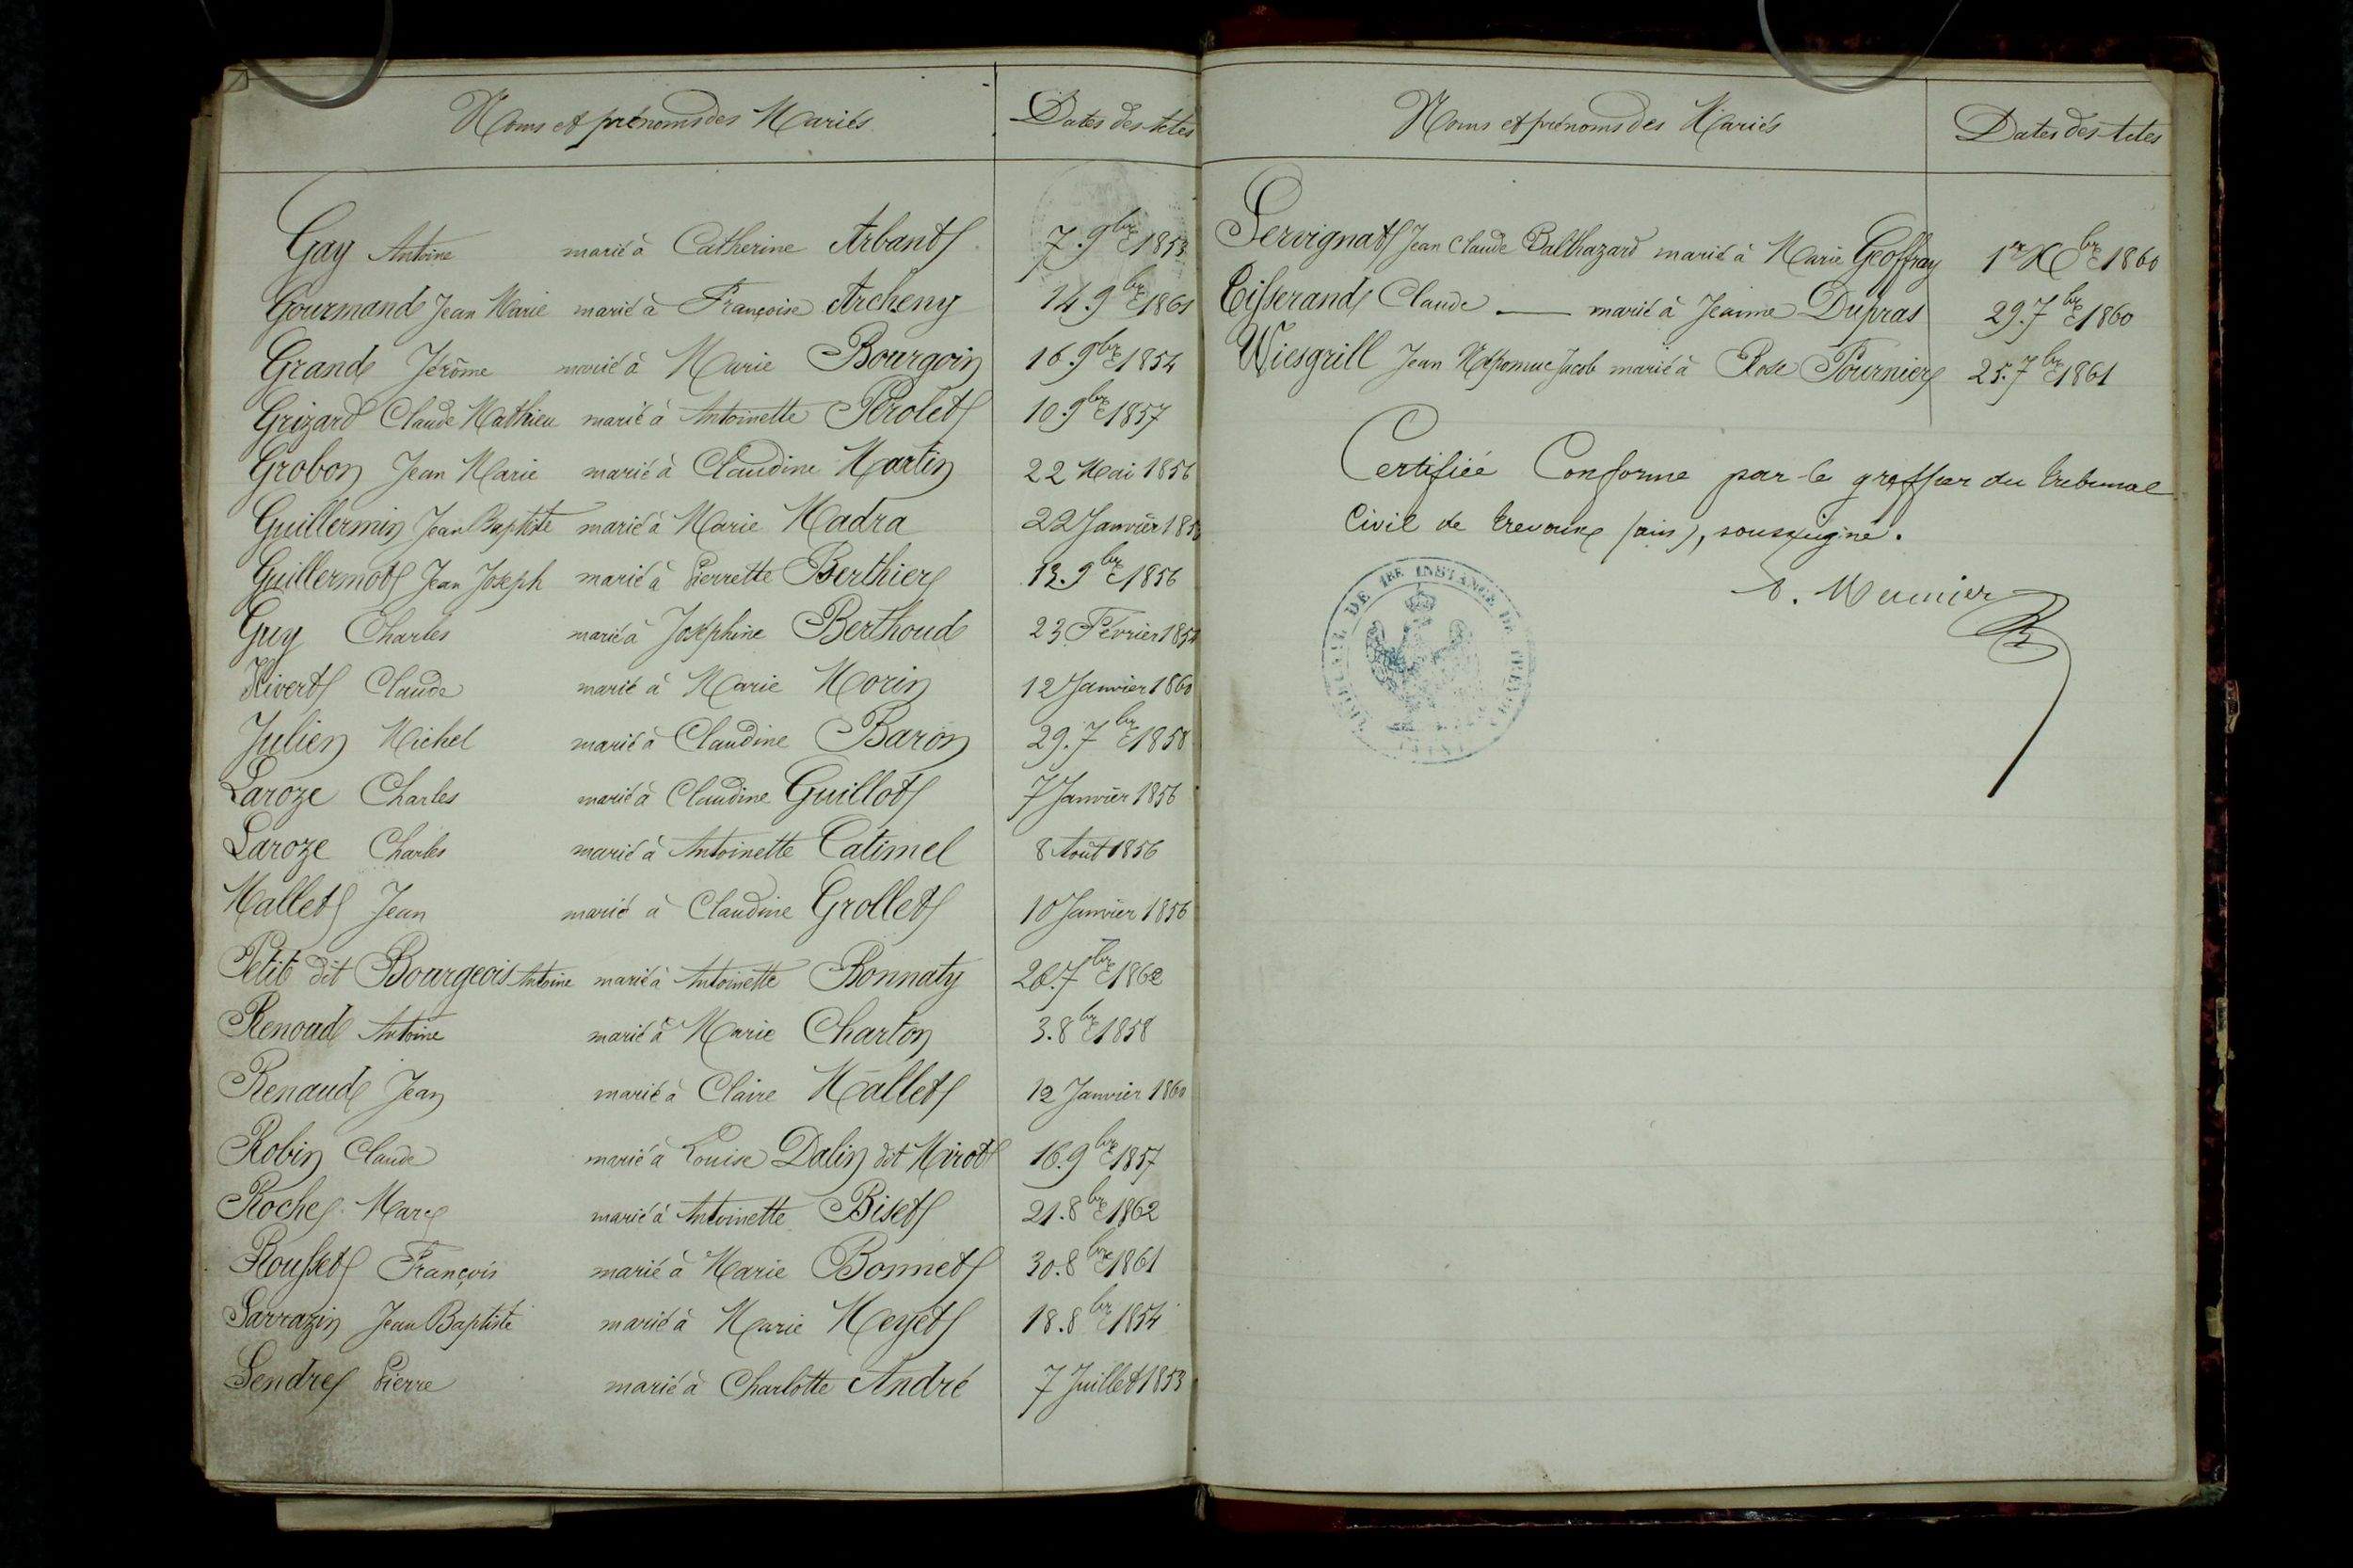 Noms et prénoms des Mariés
Dates des actes
Gay Antoine marié à Catherine Arbant 7. 9bre 1853
Gourmand Jean Marie marié à Françoise Archeny 14. 9bre 1861
Grand Jérôme marié à Marie Bourgoin 16. 9bre 1854
Grizard Claude Mathieu marié à Antoinette Pérolet 10. 9bre 1857
Grobon Jean Marie marié à Claudine Martin 22 Mai 1856
Guillermin Jean Baptiste marié à Marie Madra 22 Janvier
Guillermot Jean Joseph marié à Pierrette Berthier 13. 9bre 1856
Guy Charles marié à Joséphine Berthoud 23 Février 1854
Hivert Claude marié à Marie Morin 12 Janvier 1860
Julien Michel marié à Claudine Baron 29. 7bre 1858
Laroze Charles marié à Claudine Guillot 7 Janvier 1856
Laroze Charles marié à Antoinette Catimel 8 Aout 1856
Mallet Jean marié à Claudine Grollet 10 Janvier 1856
Petit dit Bourgeois Antoine marié à Antoinette Bonnaty 26. 7bre 1862
Renoud Antoine marié à Marie Charton 3. 8bre 1858
Renaud Jean marié à Claire Mallet 12 Janvier 1860
Robin Claude marié à Louise Dalin dit Mirot 16. 9bre 1857
Roche Marc marié à Antoinette Biset 21. 8bre 1862
Rousset François marié à Marie Bonnet 30. 8bre 1861
Sarrazin Jean Baptiste marié à Marie Meyet 18. 8bre 1854
Sendre Pierre marié à Charlotte André 7 Juillet 1853
Noms et prénoms des Mariés
Dates des actes
Servignat Jean Claude Balthazard marié à Marie Geoffray 1er Xbre 1860
Tisserand Claude — marié à Jeanne Dupras 29. 7bre 1860
Wiesgrill Jean Népomuc Jacob marié à Rose Fournier 25. 7bre 1861
Certifiée Conforme par le greffier du tribunal
Civil de trevoux (ain), soussigné.
Meunier
DE 1RE INSTANCE DE